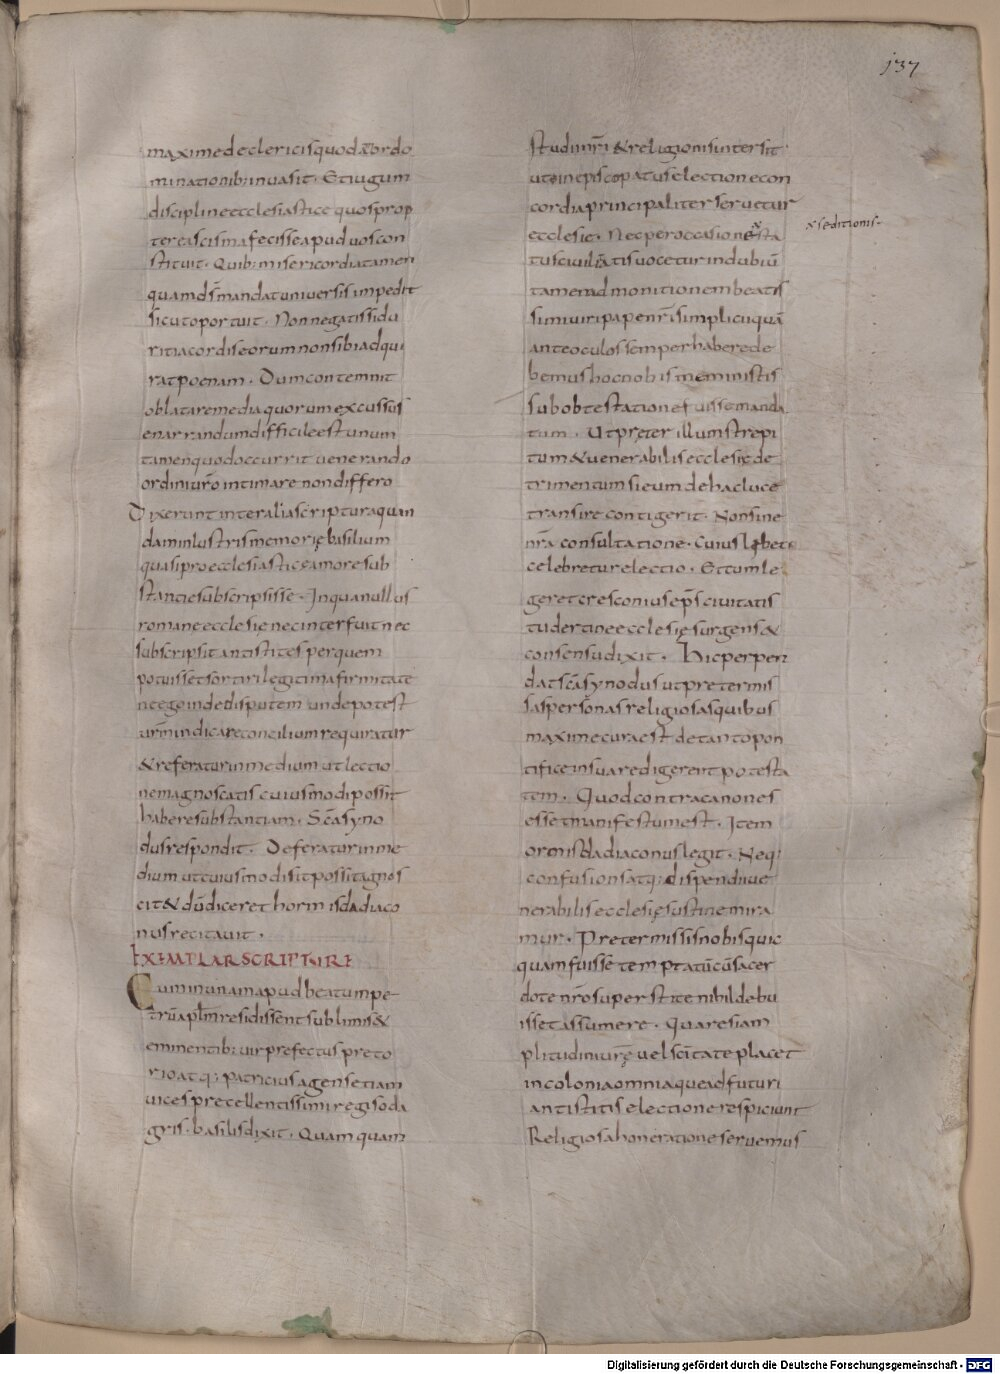 137
maxime de clericis quod æbrdo
minationib; inuasit · Et iugum
discipline ecclesiastice quos prop
terea scisma fecisse apud uos con
stituit · Quib; misericordia tamen
quam dn̄s mandat uniuersis impedit
sicut oportuit · Non negatis si du
ritia cordis eorum non sibi adqui
rat poenam · Dum contemnit
oblata remedia quorum excussus
enarrandum difficile est unum
tamen quod occurrit uenerando
ordini uro intimare non differo
Dixerunt inter alia scriptura quan
dam inlustris memorię basilium
quasi pro ecclesiastice amore sub
stantie subscripsisse · In qua nullus
romane ecclesię nec interfuit nec
subscripsit antistites per quem
potuisset sortiri legitima firmitate
nec ego inde disputem unde potest
urm̄ indicare concilium requiratur
& referatur in medium ut lectio
nem agnoscatis cuiusmodi possit
habere substantiam · Sc̄a syno
dus respondit · Deferatur in me
dium ut cuius modi sit possit agnos
cit & dū diceret hormisda diaco
nus recitauit ·
EXEMPLAR SCRIPTURE
Cum in unam apud beatum pe-
trū apl̄m residissent sublimis &
eminentib; uir prefectus preto
rio atq; patricius agens etiam
uices precellentissimi regis oda
gris · basilis dixit · Quamquam
studii nr̄i & religionis intersit ·
ut in episcopatus electione con
cordia principaliter seruetur
ecclesie · Nec per occasionē sta
tus ciuilitatis uocetur in dubiū
tamen admonitionem beatis
simi uiri pape nr̄i simplicii quā
ante oculos semper habere de
bemus hoc nobis meministis
sub obtestatione fuisse manda
tum · Ut pręter illum strepi
tum & uenerabilis ecclesię de
trimentum si eum de hac luce
transire contigerit · Non sine
nr̄a consultatione · Cuius lębete
celebretur electio · Et cum le
geret cresconius ep̄s ciuitatis
tudertine ecclesię surgens &
consensu dixit · Hic perpen
dat sc̄a synodus ut pretermis
sas personas religiosas quibus
maxime cura est de tanto pon
tifice in sua redigerent potesta
tem · Quod contra canones
esse manifestum est · Item
ormisda diaconus legit · Neq;
confusions atq; dispendii ue
nerabilis ecclesię sustinemira
mur · Pretermissis nobis quic
quam fuisse temptatū cū sacer
dote nr̄o superstite nihil debu
isset assumere · Quare si am
plitudini ur̄ę uel sc̄itate placet
in colonia omnia que ad futuri
antistitis electione respiciunt
Religiosa honeratione seruemus
seditionis ·
Digitalisierung gefördert durch die Deutsche Forschungsgemeinschaft - DFG